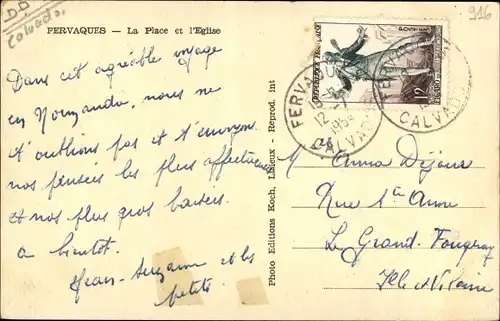 D.D.
Calvados.
916
FERVAQUES — La Place et l'Eglise
Dans cet agréable voyage
en Normandie, nous ne
t'oublions pas et t'envoyons
nos pensées les plus affectueuses
et nos plus gros baisers
à bientôt.
Jean-Suzanne et les
petits.
Photo Editions Koch, Lisieux - Reprod. int
REPUBLIQUE FRANÇAISE
POSTES
12F
FERVAQUES
12
1954
CALVADOS
FERVAQUES
CALVADOS
M Anna Déjoux
Rue Ste Anne
Le Grand-Fougeray
Ille et Vilaine